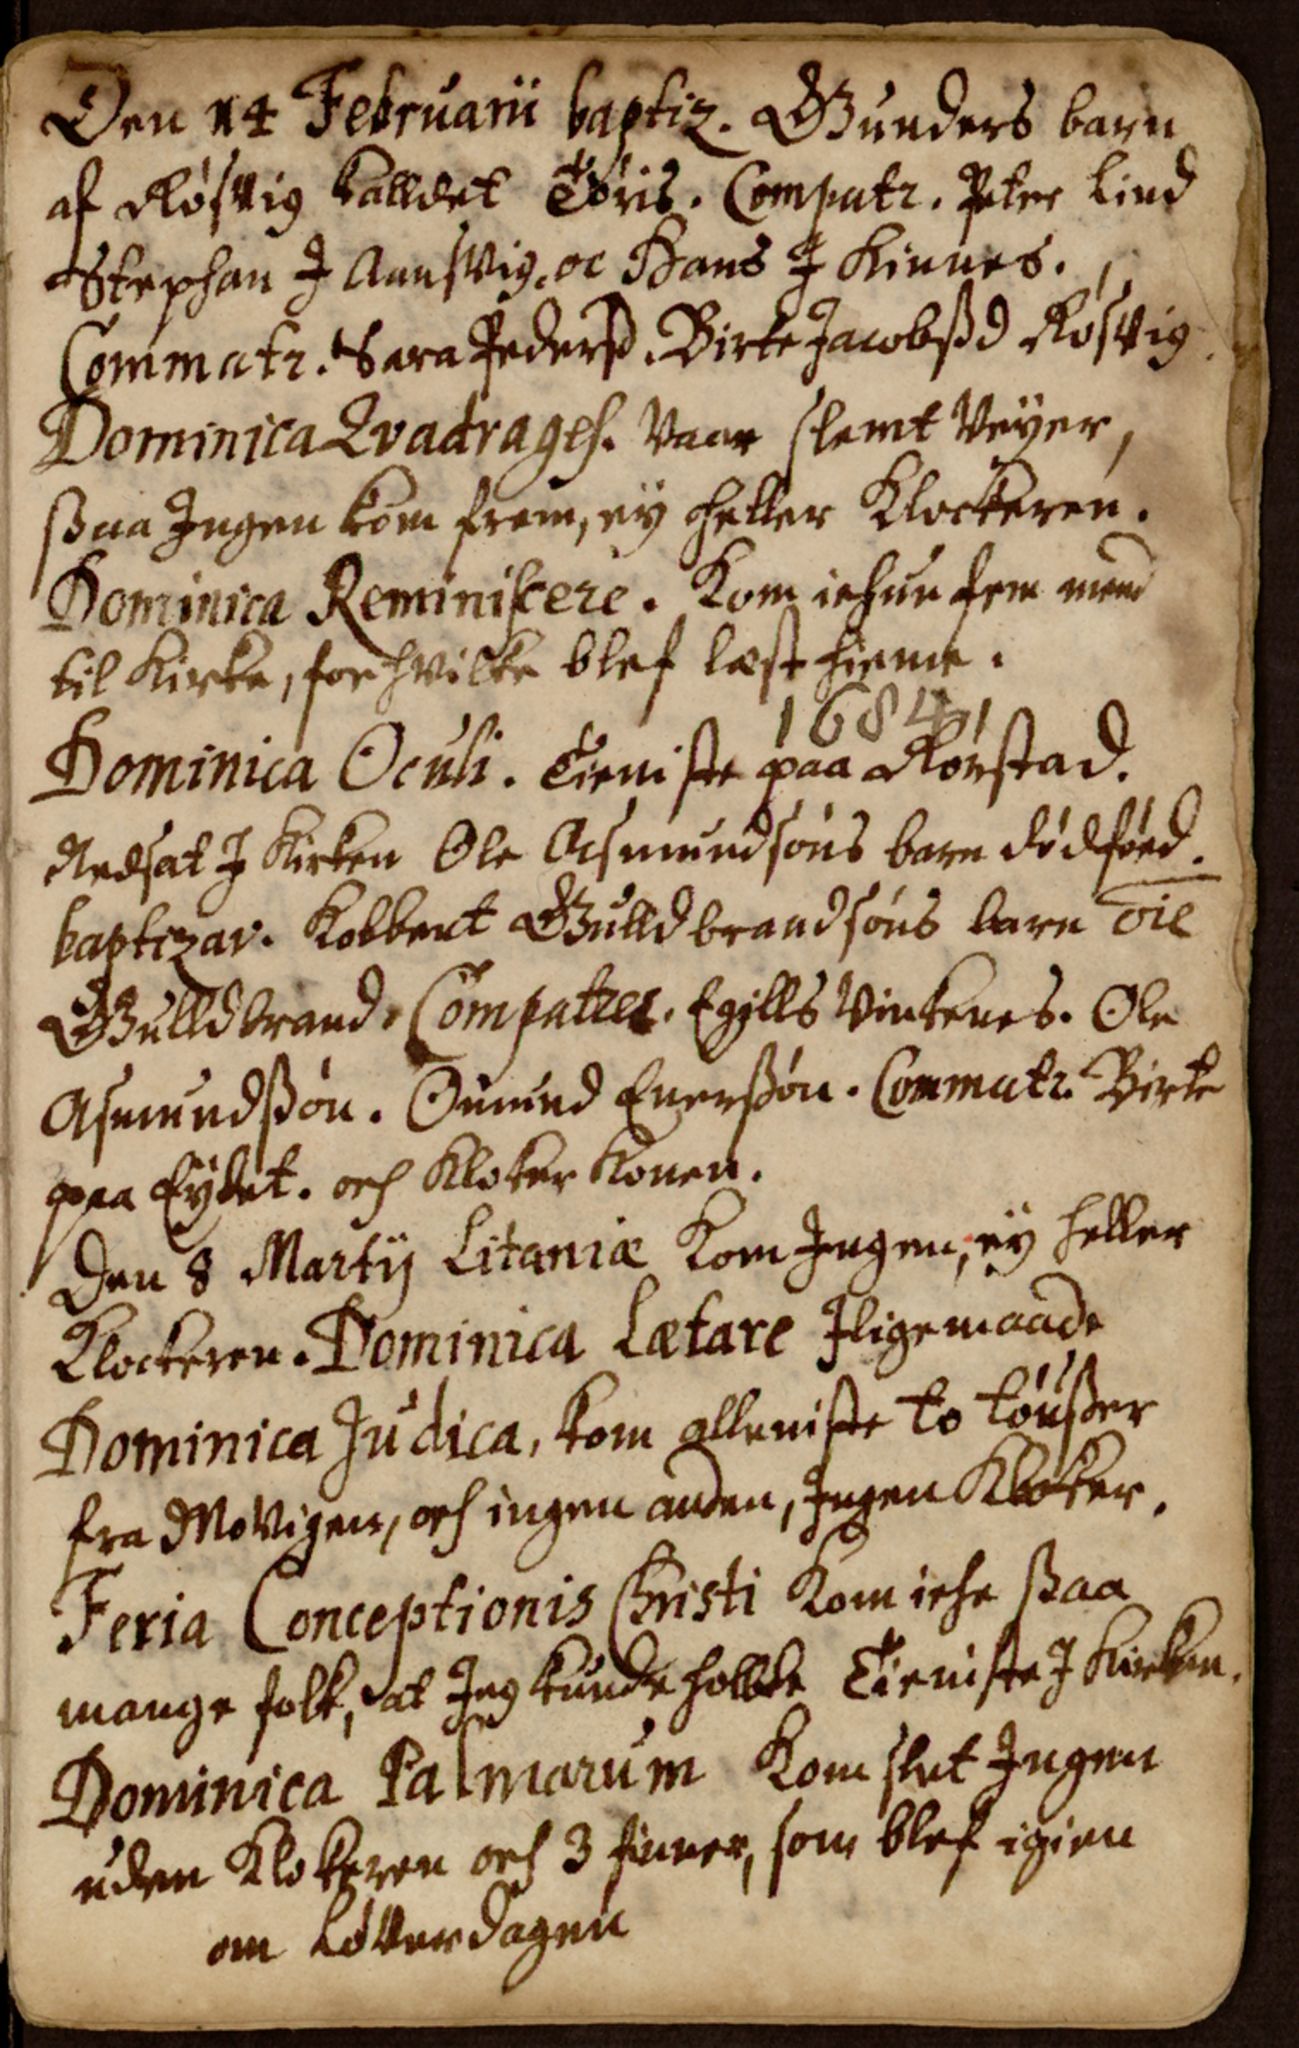 Den 14 Februarii baptiz. Gunders barn
af Røsvig kalldet Tøris. Compatr. Peter Lind
Stephan J Aunsvig. oc Hans J Kinnes.
Commatr. Sara Pederß. Birte Jacobßd Røsvig
Dominica Qvadrages. Vaar slemt Veÿer,
ßaa Ingen kom frem, eÿ heller Klockeren.
Dominica Reminiscere. Kom ichun fem mend
til Kirke, for hvilke blef læst hieme.
1684
Dominica Oculi. Tieniste paa Rørstad.
Nedsat J Kirken Ole Asmundsøns barn dødføed.
baptizav. Kolbent Gulldbrandsøns barn
Gulldbrand. Compatres. Egills Vintenes. Ole
Asmundßøn. Ønund Enerßøn. Commatr. Birte
paa Eÿdet. och Kloker Konen.
Den 8 Martij Litaniæ Kom Ingen, eÿ heller
Klockeren. Dominica Lætare Jligemaade
Dominica Judica, kom alleniste to tøußer
fra Movigen, och ingen anden, Ingen Kloker.
Feria Conceptionis Christi Kom iche ßaa
mange folk, at Jeg kunde hollde Tieniste J Kirken.
Dominica Palmarum Kom slet Ingen
uden Klokeren och 3 finner, som blef igien
om Løverdagen